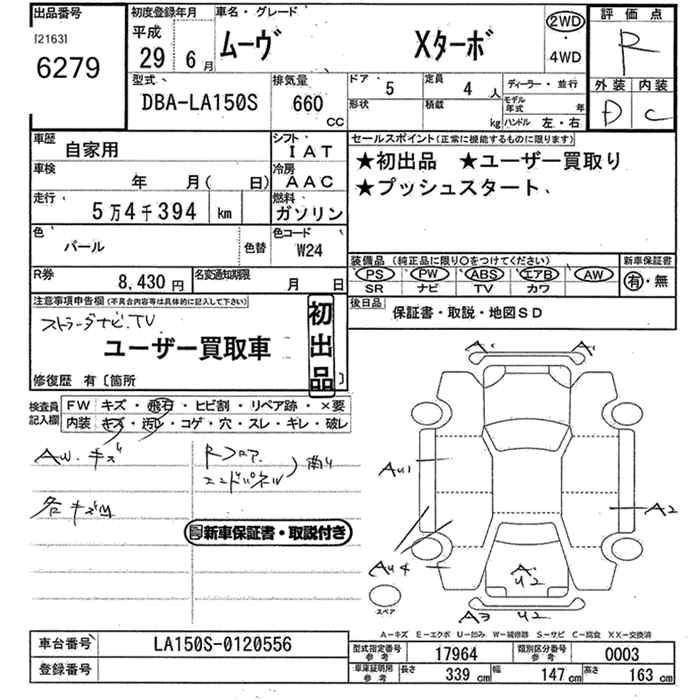 出品番号
[2163]
6279
初度登録年月
平成
29年 6月
車名・グレード
ムーヴ Xターボ
2WD
・
4WD
評価点
R
外装 内装
D C
型式
DBA-LA150S
排気量
660 CC
ドア 5
定員 4人
形状
積載 kg
ディーラー・並行
モデル年式 年
ハンドル 左・右
車歴 自家用
シフト IAT
車検 年 月( 日)
冷房 AAC
走行 5万4千394 km
燃料 ガソリン
色 パール 色替
色コード W24
R券 8,430円
名変通知期限 月 日
セールスポイント(正常に機能するものに限ります)
★初出品 ★ユーザー買取り
★プッシュスタート、
装備品 (純正品に限り○をつけてください)
PS PW ABS エアB AW
SR ナビ TV カワ
新車保証書
有・無
後日品 保証書・取説・地図SD
注意事項申告欄(不具合内容等は具体的に記入して下さい)
ストラーダナビ.TV
ユーザー買取車
初出品
修復歴 有〔箇所 〕
検査員記入欄
FW キズ・飛石・ヒビ割・リペア跡・×要
内装 キズ・汚レ・コゲ・穴・スレ・キレ・破レ
AW.キズ
Rフロア.
エンドパネル
各キズ凹
新車保証書・取説付き
A1 A1
AU1
A2
AU4
A.
U2
A3 U2
スペア
A-キズ E-エクボ U-凹み W-補修跡 S-サビ C-腐食 XX-交換済
車台番号 LA150S-0120556
登録番号
型式指定番号 参考 17964
類別区分番号 参考 0003
車庫証明用 参考 長さ 339cm 幅 147cm 高さ 163cm